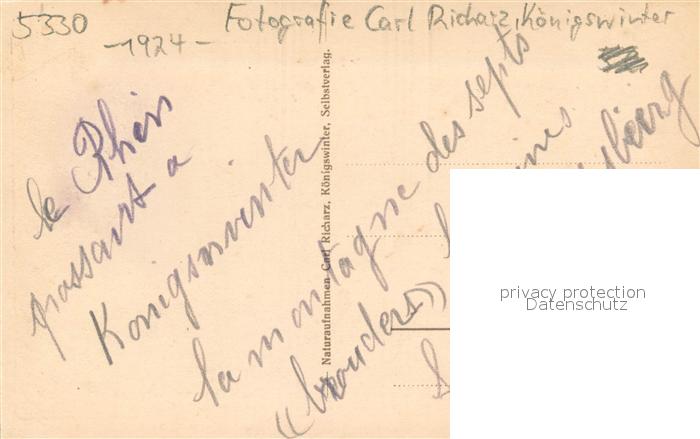 5330
-1924-
Fotografie Carl Richarz, Königswinter
le Rhin
passant a
Konigswinter
la montagne des septs
Naturaufnahmen Carl Richarz, Königswinter, Selbstverlag.
privacy protection
Datenschutz